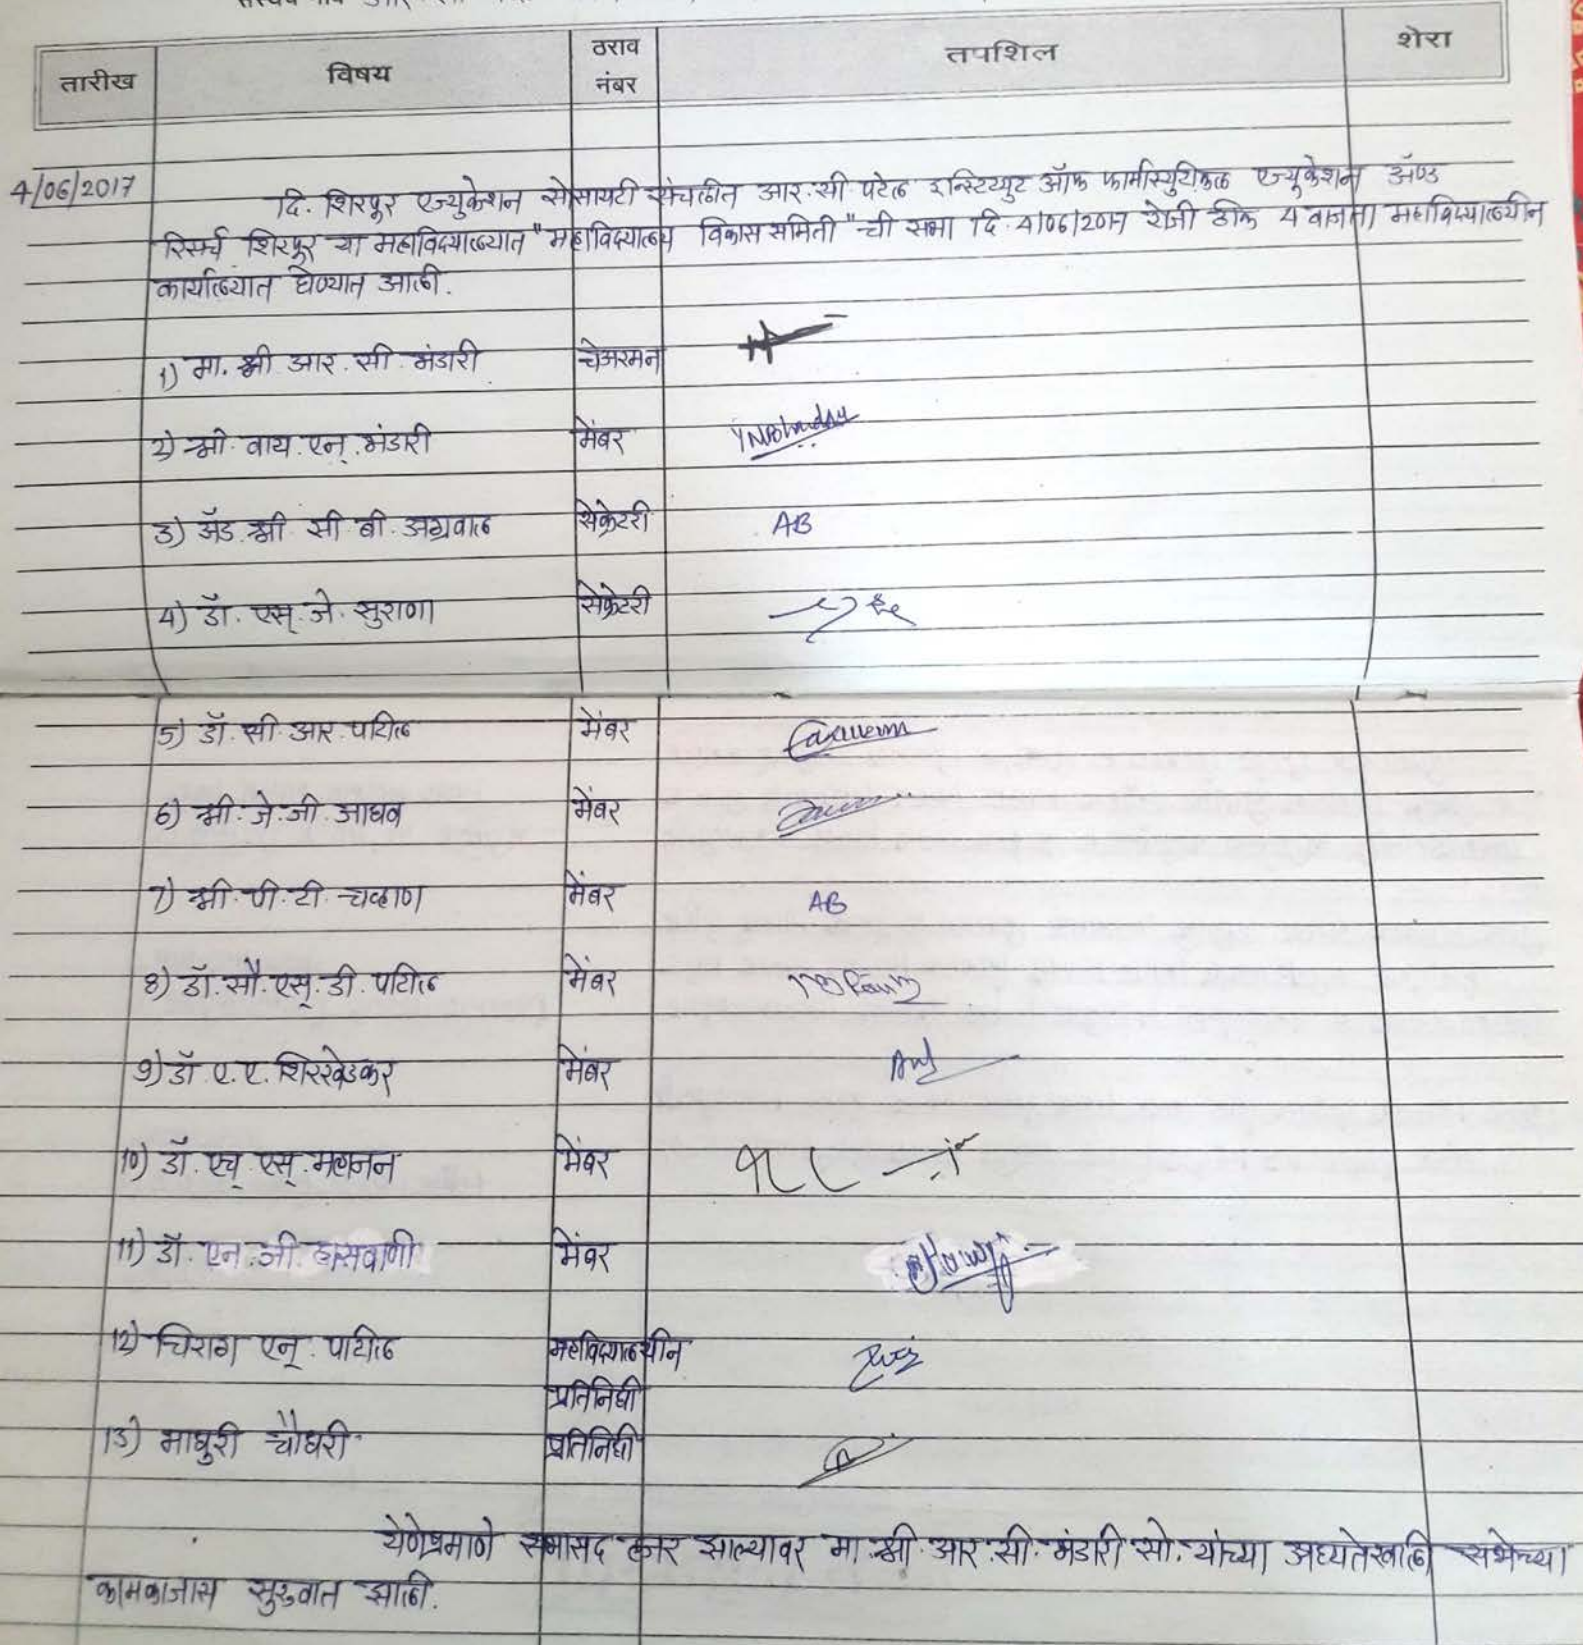 तारीख विषय ठराव नंबर तपशिल शेरा
4/06/2017
दि. शिरपूर एज्युकेशन सोसायटी संचलीत आर.सी.पटेल इन्स्टिट्युट ऑफ फार्मास्युटिकल एज्युकेशन अॅण्ड
रिसर्च शिरपूर या महाविद्यालयात "महाविद्यालय विकास समिती" ची सभा दि. 4/06/2017 रोजी ठीक 4 वाजता महाविद्यालयीन
कार्यालयात घेण्यात आली.
1) मा. श्री आर. सी. भंडारी चेअरमन
2) श्री. वाय. एन्. भंडारी मेंबर YNBhandari
3) अॅड. श्री. सी. बी. अग्रवाल सेक्रेटरी AB
4) डॉ. एस्. जे. सुराणा सेक्रेटरी
5) डॉ. सी. आर. पाटील मेंबर
6) श्री. जे. जी. जाधव मेंबर
7) श्री. पी. टी. चव्हाण मेंबर AB
8) डॉ. सौ. एस्. डी. पाटील मेंबर
9) डॉ. ए. ए. शिरखेडकर मेंबर
10) डॉ. एच्. एस्. महाजन मेंबर
11) डॉ. एन. जी. हासवाणी मेंबर
12) चिराग एन्. पाटील महाविद्यालयीन
प्रतिनिधी
13) माधुरी चौधरी प्रतिनिधी
येणेप्रमाणे सभासद हजर झाल्यावर मा. श्री. आर. सी. भंडारी सो. यांच्या अध्यतेखाली सभेच्या
कामकाजास सुरुवात झाली.